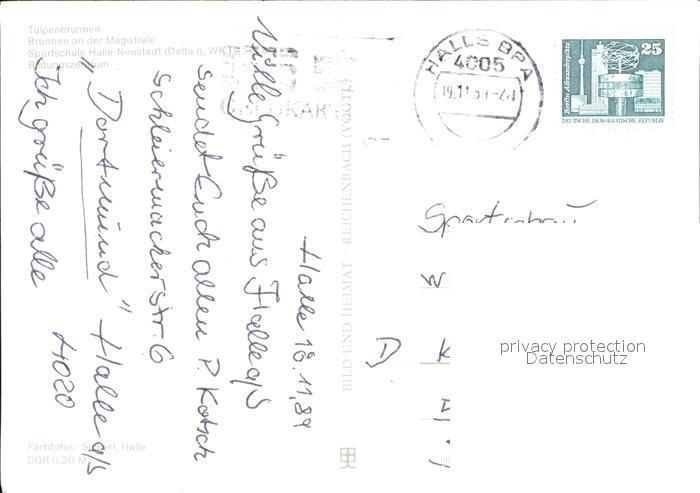 Tulpenbrunnen
Brunnen an der Magistrale
Sportschule Halle-Neustadt (Delta I), WK
Bildungszentrum
Halle 18.11.89
Viele Grüße aus Halle a/S
sendet Euch allen P. Kotsch
Schleiermacherstr. 6
"Dortmund" Halle a/S
Ich grüße alle 4020
Farbfotos: Halle
DDR 0,20 M
BILD UND HEIMAT · REICHENBACH (VOGTL)
HALLE BPA
4005
19.11.
Berlin, Alexanderplatz
25
DEUTSCHE DEMOKRATISCHE REPUBLIK
W
D K
privacy protection
Datenschutz